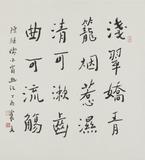 淺翠嬌青
籠烟惹濕
清可漱齒
曲可流觴
陳继儒小窗幽记